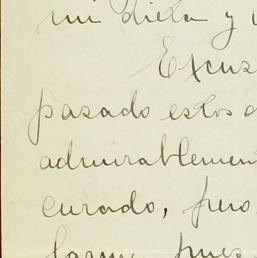 mi dieta y
Excus
pasado estos
admirablemen
curado, pero
pues